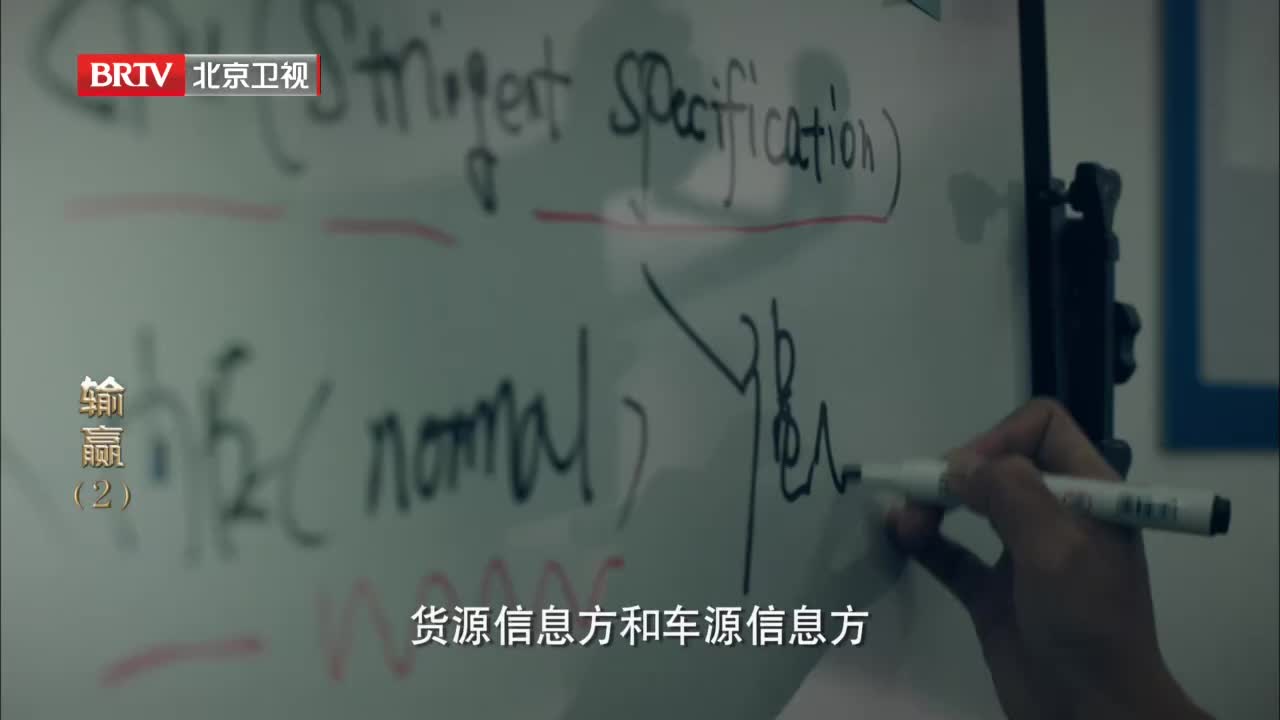 BRTV 北京卫视
(Stringent specification)
(normal)
输
赢
(2)
货源信息方和车源信息方